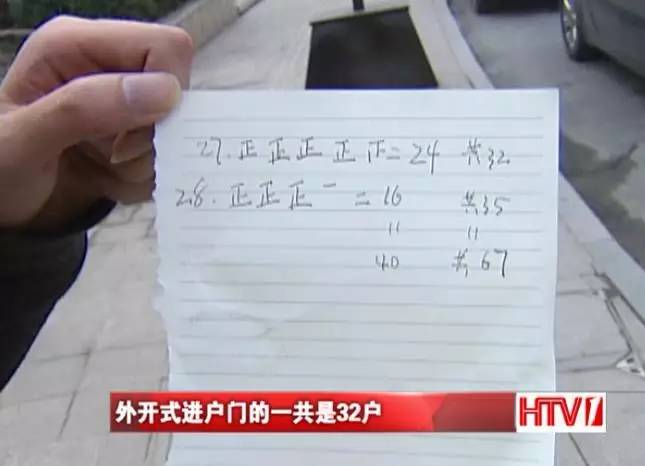 27.正正正正下=24 共32
28.正正正一=16 共35
〃 〃
40 共67
外开式进户门的一共是32户
HTV1